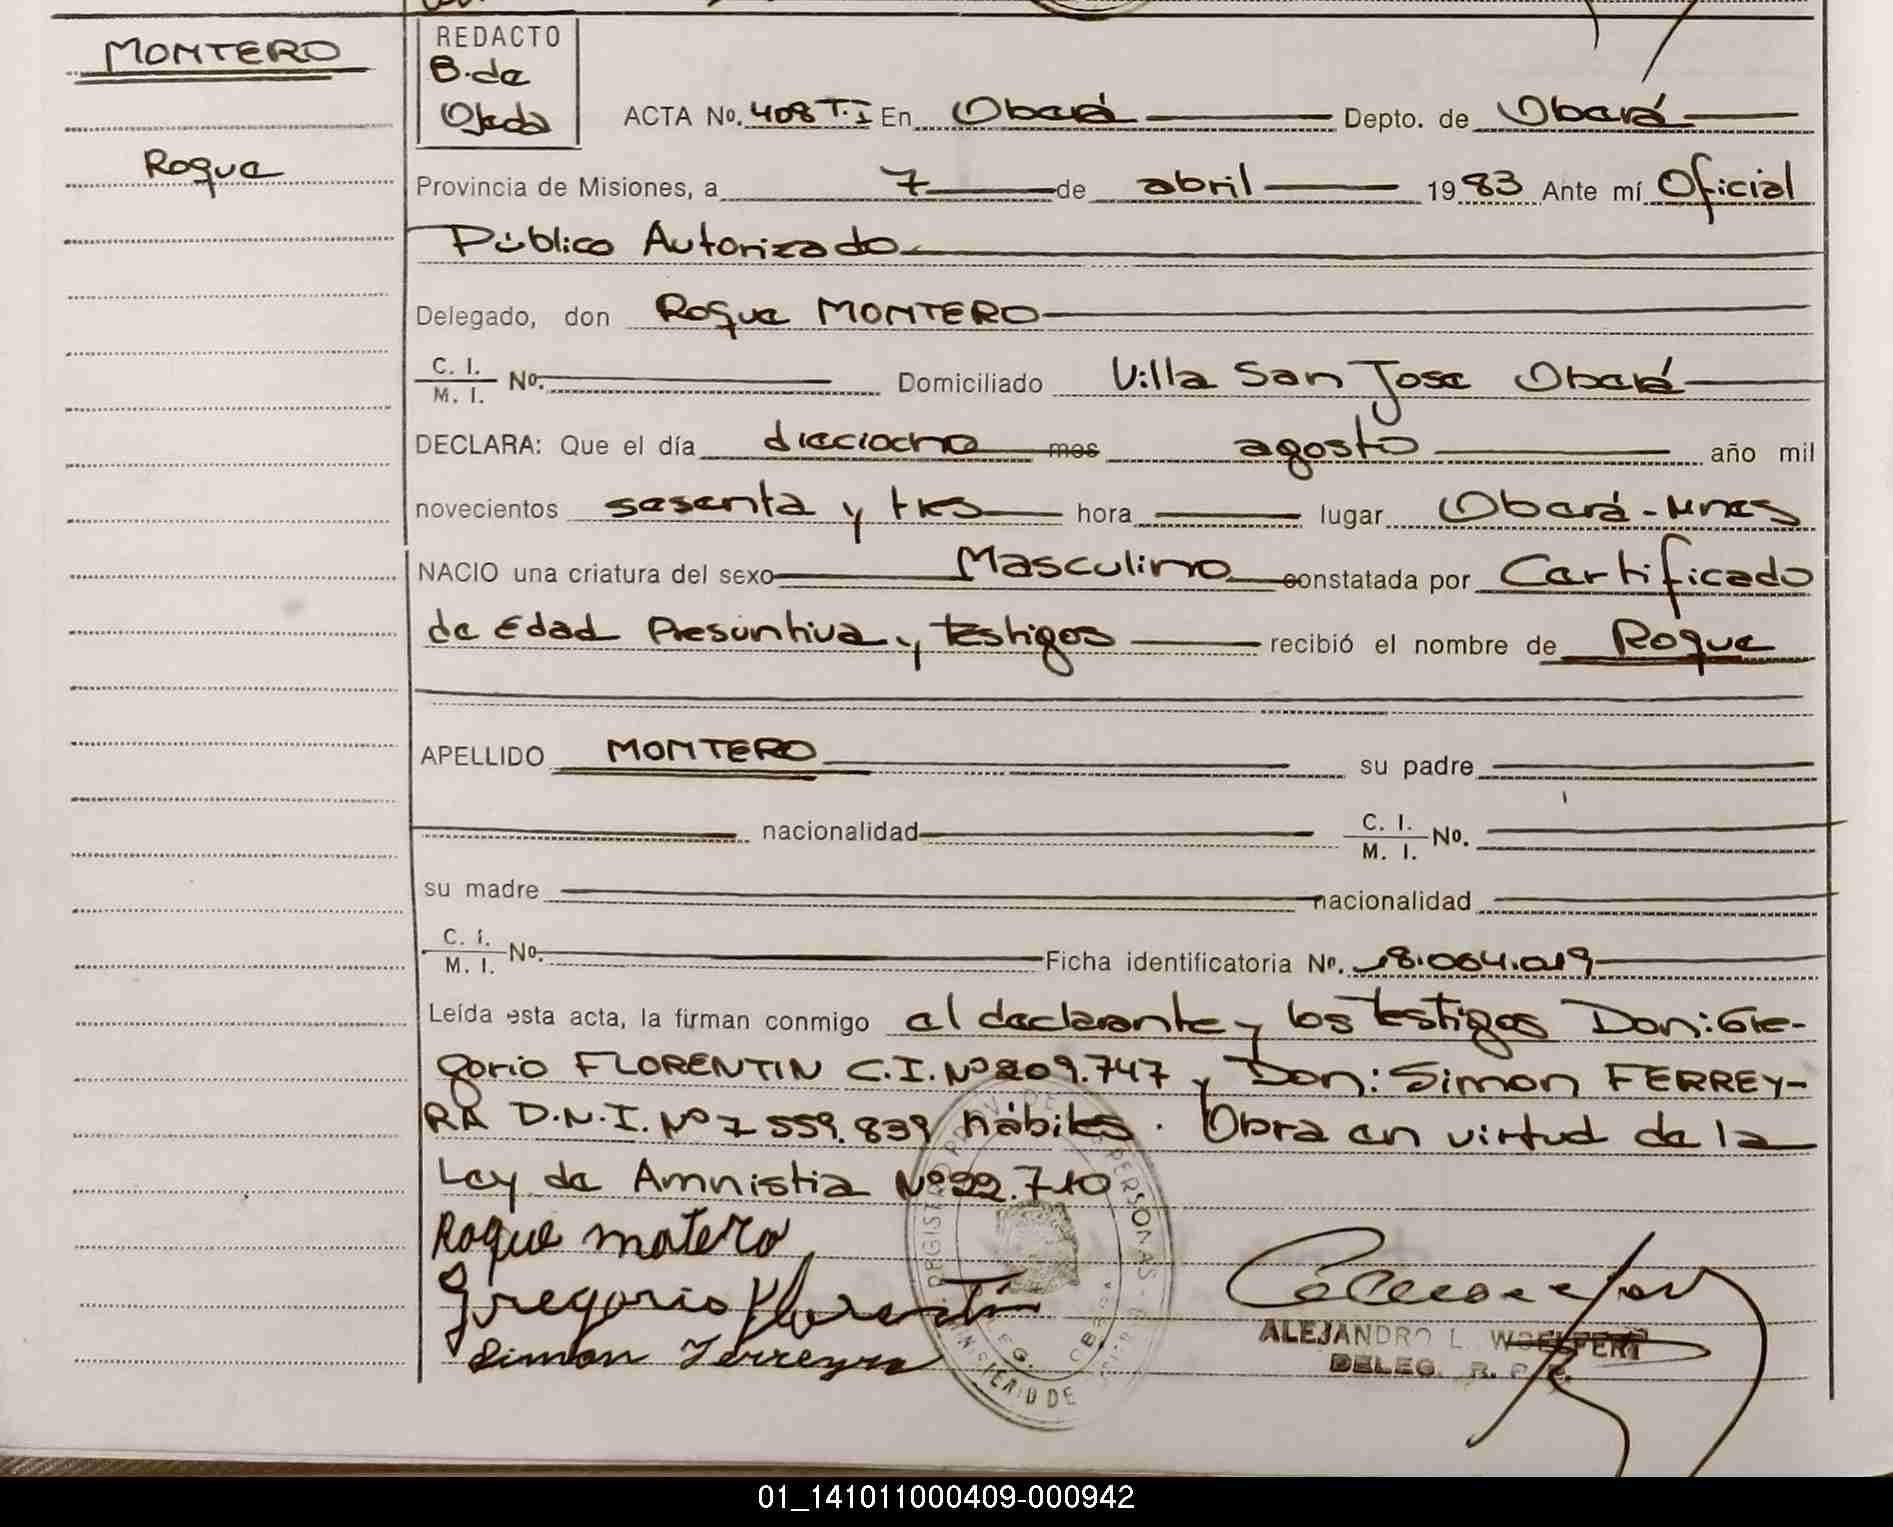 MONTERO
Roque
REDACTO
B. de
Ojeda
ACTA No. 408 T.I En Oberá Depto. de Oberá
Provincia de Misiones, a 7 de abril 1983 Ante mí Oficial
Público Autorizado
Delegado, don Roque MONTERO
C. I. / M. I. No. Domiciliado Villa San Jose Oberá
DECLARA: Que el día dieciocho mes agosto año mil
novecientos sesenta y tres hora lugar Oberá - Mnes
NACIO una criatura del sexo Masculino constatada por Certificado
de Edad Presuntiva y testigos recibió el nombre de Roque
APELLIDO MONTERO su padre
nacionalidad C. I. / M. I. No.
su madre nacionalidad
C. I. / M. I. No. Ficha identificatoria No. 18.064.019
Leída esta acta, la firman conmigo el declarante y los testigos Don: Gre-
gorio FLORENTIN C.I. Nº 209.747 y Don: Simon FERREY-
RA D.N.I. Nº 7 559.839 hábiles. Obra en virtud de la
Ley de Amnistia Nº 22.710
Roque matero
Gregorio Florentin
Simon Ferreyra
ALEJANDRO L. WOELFERT
DELEG. R. P. P.
MINISTERIO DE
PERSONAS
01_141011000409-000942